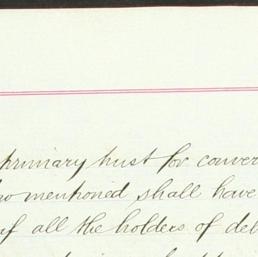 primary trust for conver
mentioned shall have
of all the holders of del